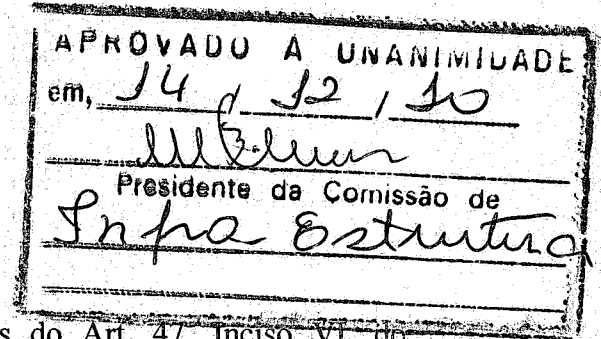 APROVADO A UNANIMIDADE
em, 14 / 12 / 10
Presidente da Comissão de
Infra Estrutura
s do Art. 47, Inciso VI, do